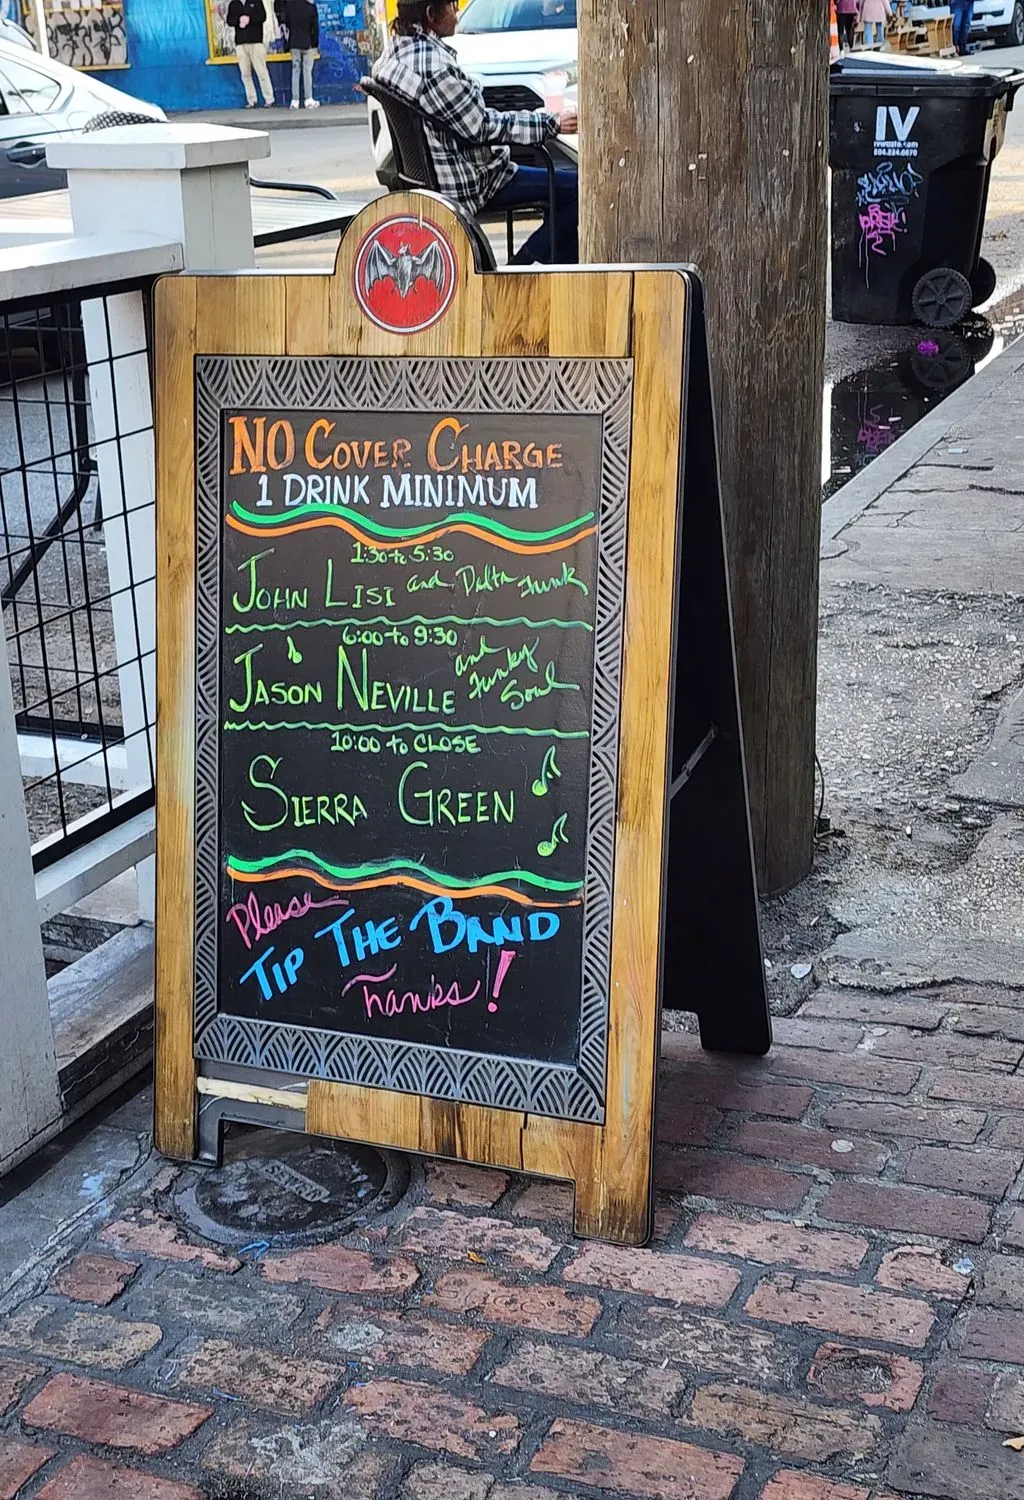 IV
ivwaste.com
504.224.6870
NO COVER CHARGE
1 DRINK MINIMUM
1:30 to 5:30
JOHN LISI and Delta Funk
6:00 to 9:30
JASON NEVILLE and Funky Soul
10:00 to CLOSE
SIERRA GREEN
Please
TIP THE BAND
Thanks!